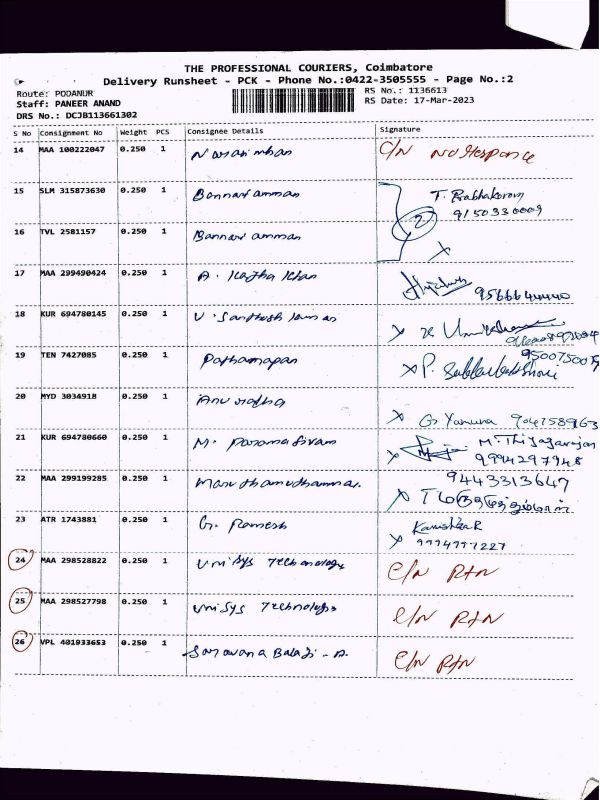 THE PROFESSIONAL COURIERS, Coimbatore
Delivery Runsheet - PCK - Phone No.:0422-3505555 - Page No.:2
Route: PODANUR
RS No.: 1136613
Staff: PANEER ANAND
RS Date: 17-Mar-2023
DRS No.: DCJB113661302
S No Consignment No Weight PCS Consignee Details Signature
14 MAA 100222047 0.250 1 Narasimhan C/N No Response
15 SLM 315873630 0.250 1 Bannari amman T. Prabhakaran
9150330009
2
16 TVL 2581157 0.250 1 Bannari amman X
17 MAA 299490424 0.250 1 A. Kajha Khan
9566644440
18 KUR 694780145 0.250 1 V. Santhosh kumar X
19 TEN 7427085 0.250 1 Pathamapan
X P.
20 MYD 3034918 0.250 1 Anuradha
X G. Yamuna 904758963
21 KUR 694780660 0.250 1 M. Paramasivam M. Thiyagarajan
X 9994297948
22 MAA 299199285 0.250 1 9443313647
X
23 ATR 1743881 0.250 1 G. Ramesh
X
24 MAA 298528822 0.250 1 Unisys Technology C/N RTN
25 MAA 298527798 0.250 1 Unisys Technology C/N RTN
26 VPL 401933653 0.250 1 Saravana Balaji - A. C/N RTN